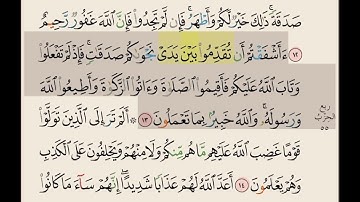 صَدَقَةً ۚ ذَٰلِكَ خَيْرٌ لَّكُمْ وَأَطْهَرُ ۚ فَإِن لَّمْ تَجِدُوا۟ فَإِنَّ ٱللَّهَ غَفُورٌ رَّحِيمٌ
١٢ ءَأَشْفَقْتُمْ أَن تُقَدِّمُوا۟ بَيْنَ يَدَىْ نَجْوَىٰكُمْ صَدَقَٰتٍ ۚ فَإِذْ لَمْ تَفْعَلُوا۟
وَتَابَ ٱللَّهُ عَلَيْكُمْ فَأَقِيمُوا۟ ٱلصَّلَوٰةَ وَءَاتُوا۟ ٱلزَّكَوٰةَ وَأَطِيعُوا۟ ٱللَّهَ
وَرَسُولَهُۥ ۚ وَٱللَّهُ خَبِيرٌۢ بِمَا تَعْمَلُونَ ١٣ ۞ أَلَمْ تَرَ إِلَى ٱلَّذِينَ تَوَلَّوْا۟
قَوْمًا غَضِبَ ٱللَّهُ عَلَيْهِم مَّا هُم مِّنكُمْ وَلَا مِنْهُمْ وَيَحْلِفُونَ عَلَى ٱلْكَذِبِ
وَهُمْ يَعْلَمُونَ ١٤ أَعَدَّ ٱللَّهُ لَهُمْ عَذَابًا شَدِيدًا ۖ إِنَّهُمْ سَآءَ مَا كَانُوا۟
ربع
الحزب
٥٥